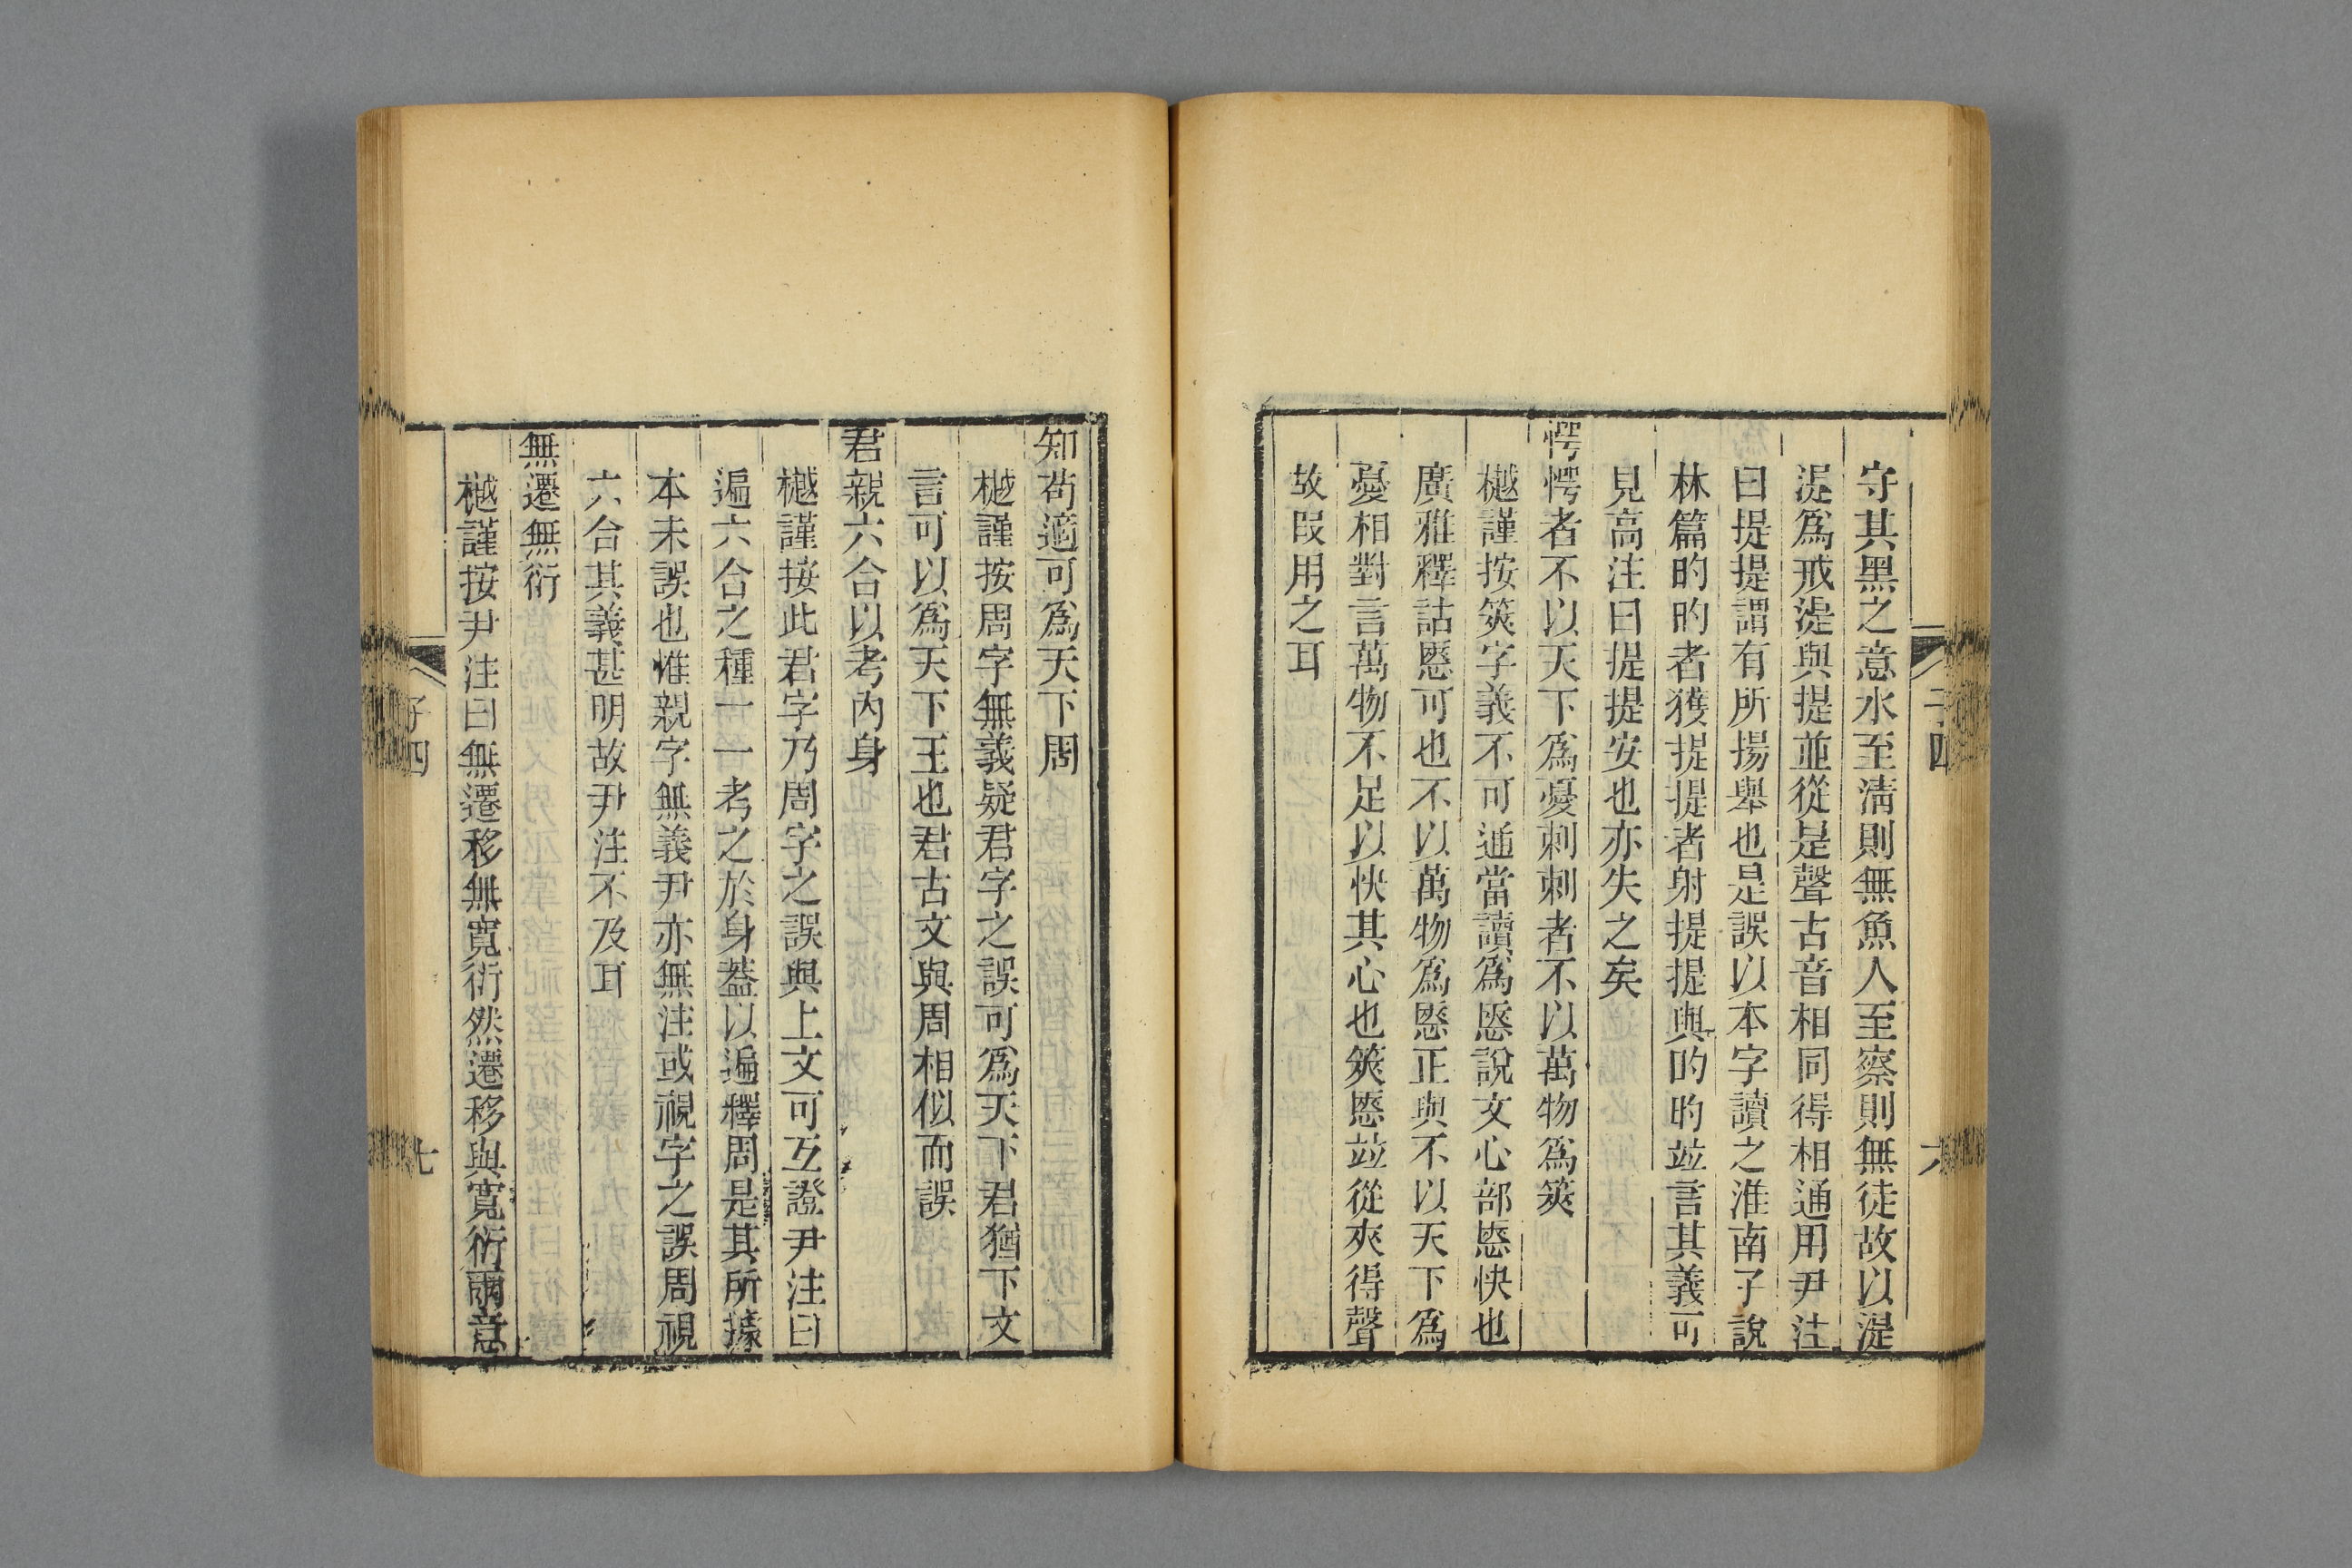 守其黑之意水至淸則無魚人至察則無徒故以湜
湜爲戒湜與提並從是聲古音相同得相通用尹注
曰提提謂有所揚舉也是誤以本字讀之淮南子說
林篇旳旳者獲提提者射提提與旳旳竝言其義可
見高注曰提提安也亦失之矣
愕愕者不以天下爲憂刺刺者不以萬物爲筴
樾謹按筴字義不可通當讀爲㥦說文心部㥦快也
廣雅釋詁㥦可也不以萬物爲㥦正與不以天下爲
憂相對言萬物不足以快其心也筴㥦竝從夾得聲
故叚用之耳
子四
六
知苟適可爲天下周
樾謹按周字無義疑君字之誤可爲天下君猶下文
言可以爲天下王也君古文與周相似而誤
君親六合以考內身
樾謹按此君字乃周字之誤與上文可互證尹注曰
遍六合之種一一考之於身蓋以遍釋周是其所據
本未誤也惟親字無義尹亦無注或視字之誤周視
六合其義甚明故尹注不及耳
無遷無衍
樾謹按尹注曰無遷移無寬衍然遷移與寬衍兩意
子四
七